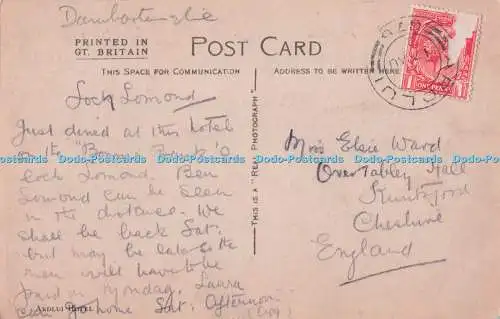 Dumbartonshire
PRINTED IN
GT. BRITAIN
POST CARD
THIS SPACE FOR COMMUNICATION
ADDRESS TO BE WRITTEN HERE
ONE PENNY
Loch Lomond
Just dined at this hotel
on the "Bonnie Banks" o
Loch Lomond. Ben
Lomond can be seen
in the distance. We
shall be back Sat.
but may be late so the
men will have to be
paid on Monday. Laura
home Sat. Afternoon
THIS IS A "REAL PHOTOGRAPH"
Miss Elsie Ward
Over Tabley Hall
Knutsford
Cheshire
England
ARDLUI HOTEL
Dodo-Postcards Dodo-Postcards Dodo-Postcards Dodo-Postcards Dodo-Postcards